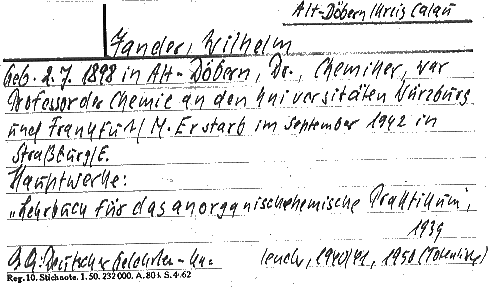 Alt-Döbern Kreis Calau
Jander, Wilhelm
Geb. 2.7. 1898 in Alt-Döbern, Dr., Chemiker, war
Professor der Chemie an den Universitäten Würzburg
und Frankfurt/M. Er starb im September 1942 in
Straßburg/E.
Hauptwerke:
„Lehrbuch für das anorganischchemische Praktikum",
1939
Deutscher Gelehrten-Ka-
lender, 1940/41, 1950 (Totenliste)
Reg. 10. Stichnote. I. 50. 232000. A. 804 S. 4/62